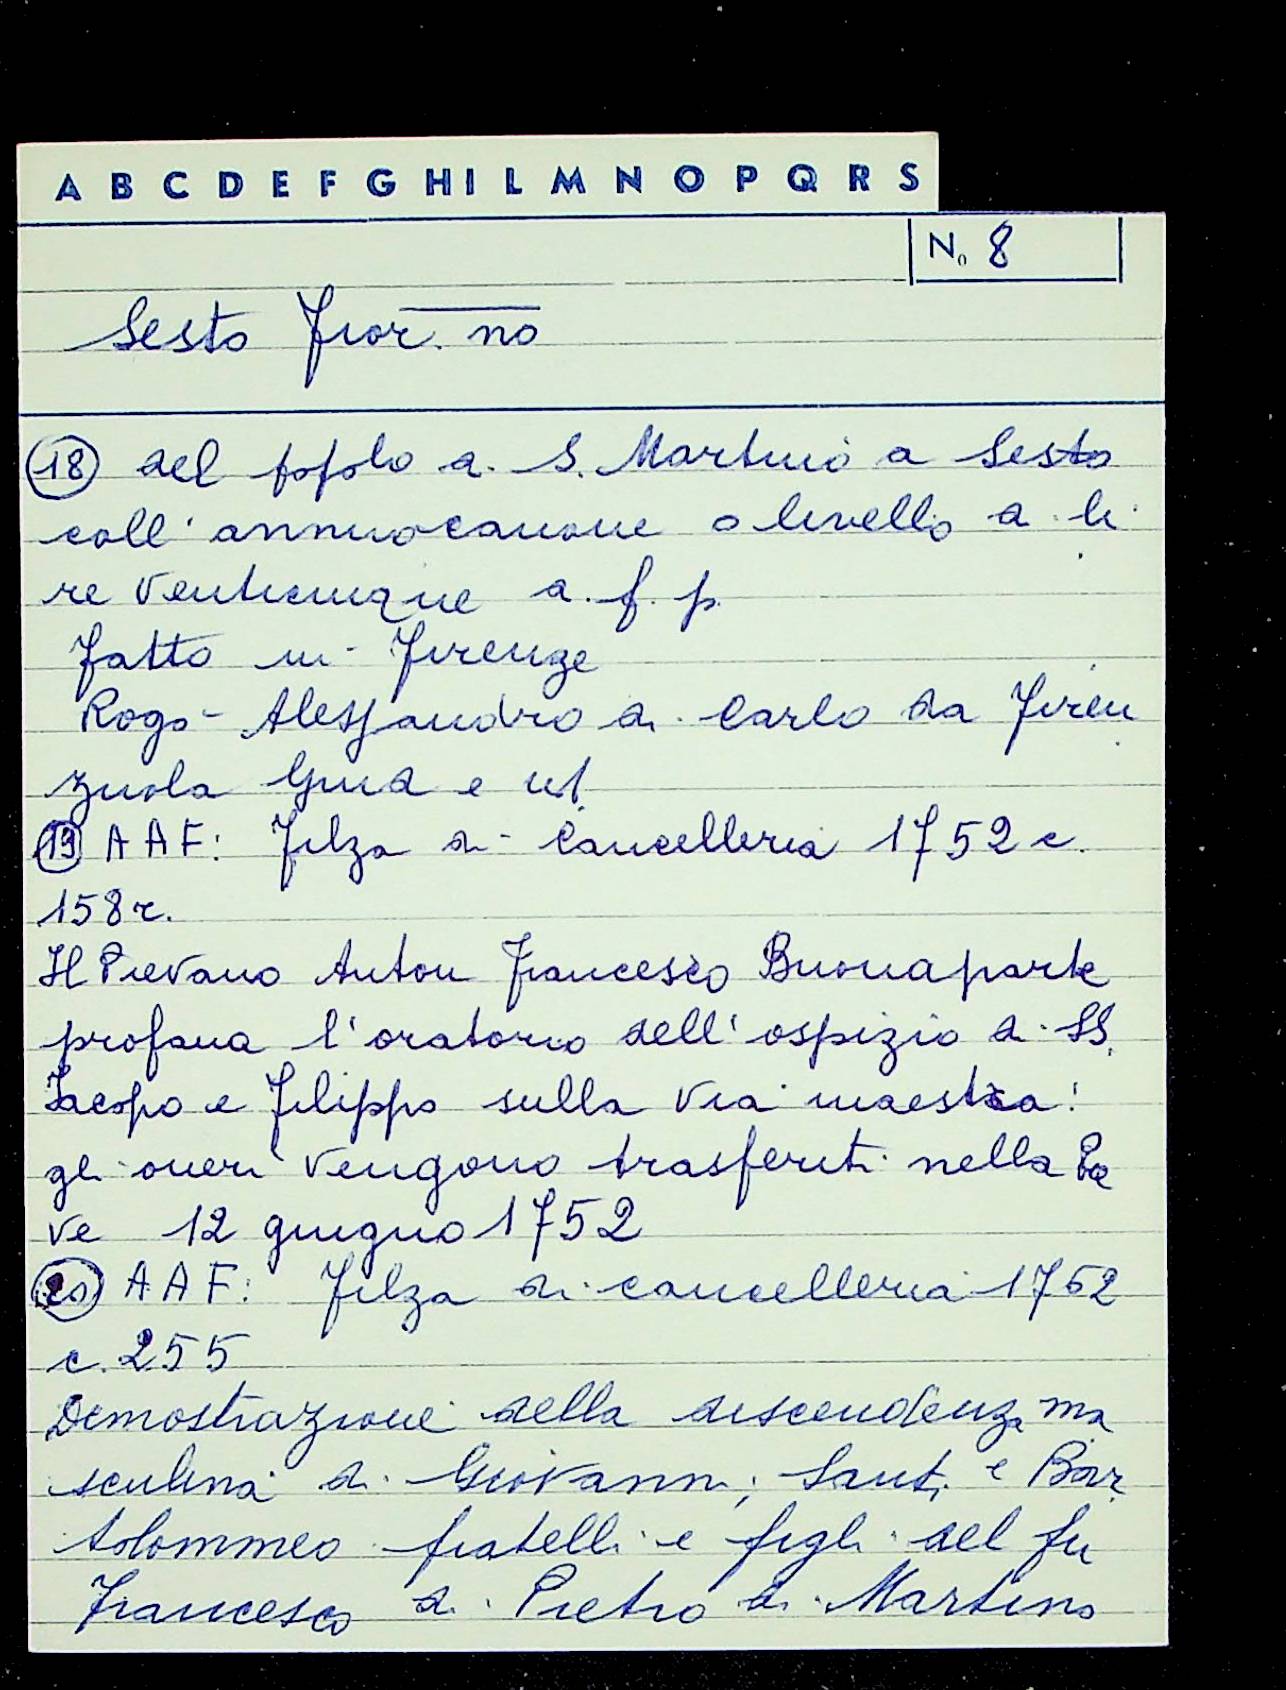 A B C D E F G H I L M N O P Q R S
N. 8
Sesto Fior.no
18 del popolo di S. Martino a Sesto
coll'annuo canone o livello di li
re venticinque a. f. p.
Fatto in Firenze
Rogò Alessandro di Carlo da Firen
zuola Giud e
19 A A F: Filza di Cancelleria 1752 c.
158r.
Il Pievano Anton Francesco Buonaparte
profana l'oratorio dell'ospizio di SS.
Iacopo e Filippo sulla via maestra:
gli oneri vengono trasferiti nella Pie
ve 12 giugno 1752
20 A.A F: Filza di cancelleria 1752
c. 255
Dimostrazione della discendenza ma
sculina di Giovanni, Santi e Bar
tolommeo fratelli e figli del fu
Francesco di Pietro di Martino